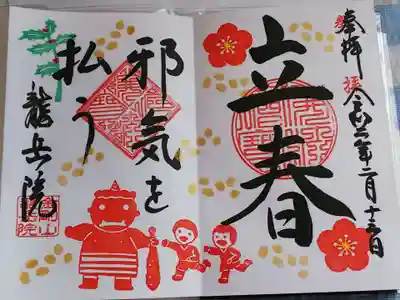 奉拝
令和三年二月十三日
立春
邪気を
払う
龍岳院